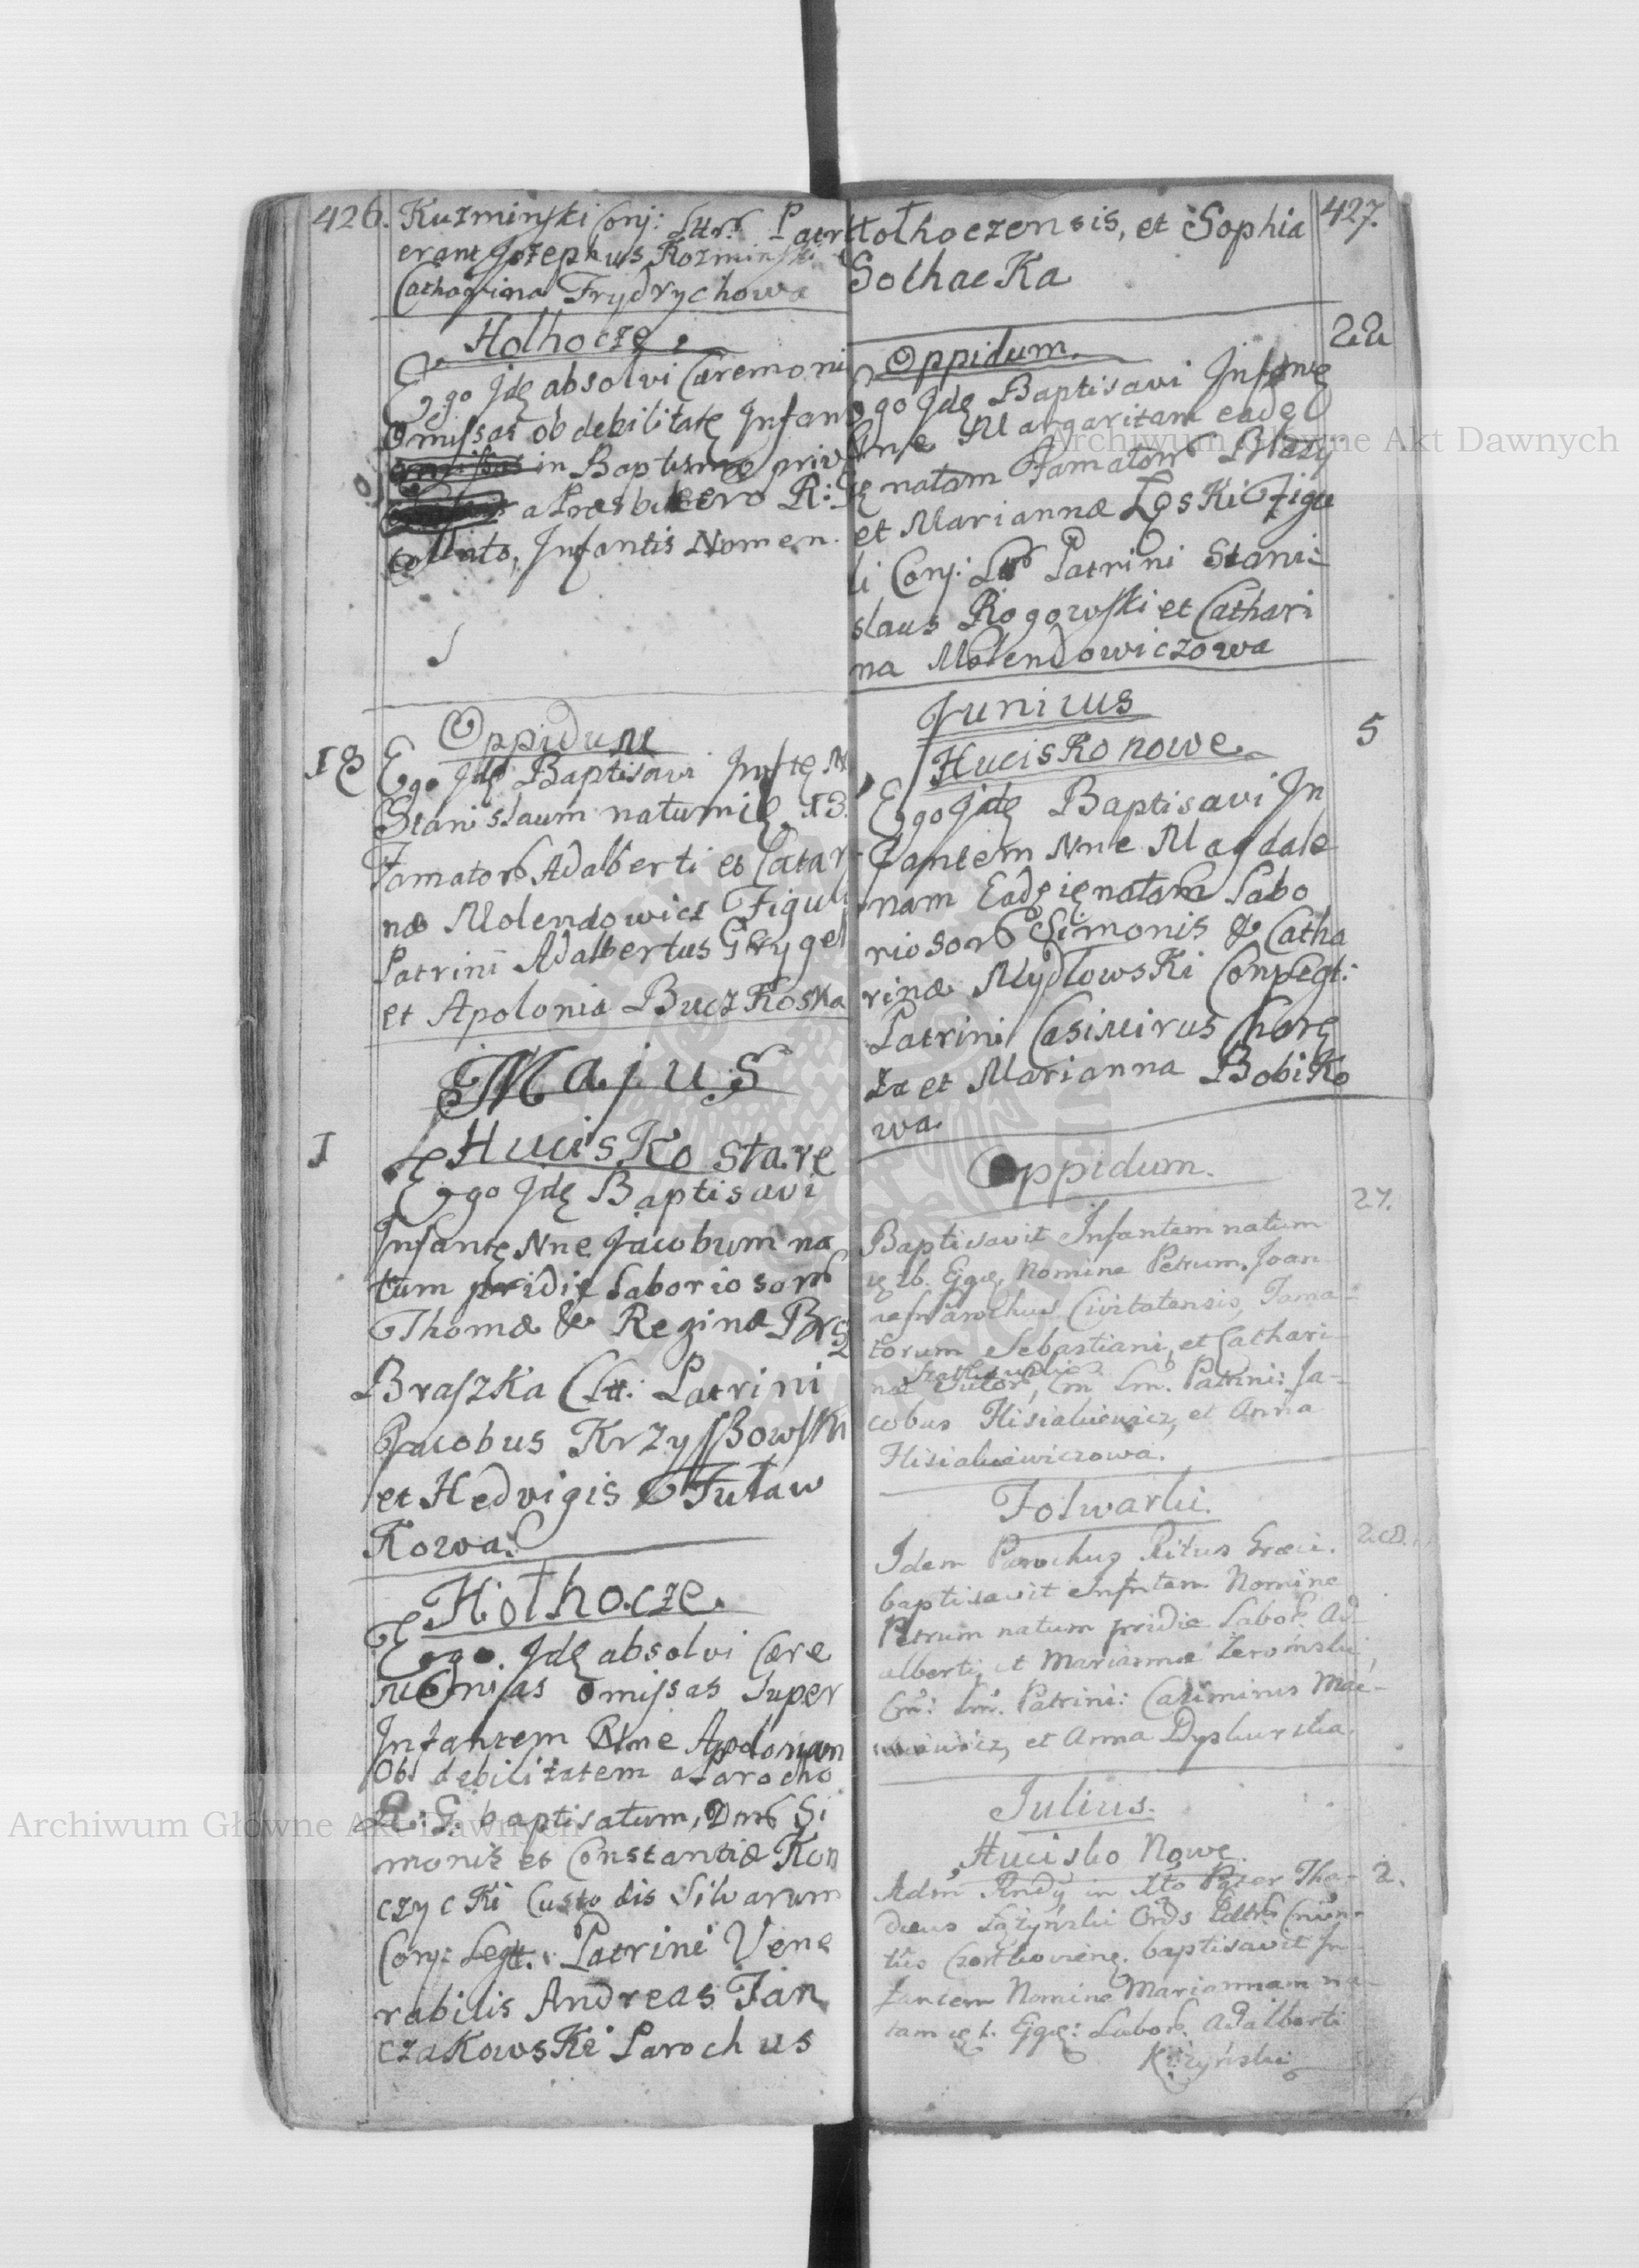 426.
Kuzminski Conj: Lttr. Patr
erant Josephus Kozminski et
Catharina Frydrychowa
Holhocze.
Ego Idę absolvi Cæremoni
omissas ob debilitatę Infan
in Baptismo priv
a Præsbitero R: G
collato, Infantis Nomen.
Oppidum
18
Ego Idę Baptisavi Inftę N
Stanislaum natum ię 13.
Famatorũ Adalberti et Catari
næ Molendowicz Figuli
Patrini Adalbertus Grygel
et Apolonia Buczkoska
Majus
1
Hucisko stare
Ego Idę Baptisavi
Infantę Nne Jacobum na
tum pridie Laboriosorũ
Thomæ & Reginæ Brs
Braszka CLtt: Patrini
Jacobus Krzyssowski
et Hedvigis Tuław
kowa.
Hołhocze.
Ego Idę absolvi Cære
monias omissas super
Infantem Nne Apolonjam
Ob debilitatem a Parocho
R: G. baptisatum, Dnorũ Si
monis et Constantiæ Kon
czycki Custodis Silvarum
Conj: Legtt. Patrini Vene
rabilis Andreas Jan
czakowski Parochus
427.
Hołhoczensis, et Sophia
Solhacka
22
Oppidum.
Ego Idę Baptisavi Infantę
Nne Margaritam eadę
ię natam Famatorũ Mazy
et Mariannæ Łoski Figu
li Conj: Ltt Patrini Stani:
slaus Rogowski et Cathari
na Molendowiczowa
Junius
5
Hucisko nowe.
Ego Idę Baptisavi In
fantem Nne Magdale
nam Eadę ię natam Labo
riosorũ Simonis & Catha
rinæ Mydłowski Conj Legt:
Patrini Casimirus Chorę
za et Marianna Bobiko
wa.
Oppidum.
27.
Baptisavit Infantem natum
ię 26. Ejɋę, Nomine Petrum. Joan
nes Parochus Civitatensis, Fama-
torum Sebastiani, et Cathari-
næ Sutor, Cm Lm. Patrini: Ja-
cobus Hisiakiewicz, et Anna
Hisiakiewiczowa.
Folwarki.
28.
Idem Parochus Ritus Græci.
baptisavit Infntem Nomine
Petrum natum pridie Labor: Ad
alberti, et Mariannæ Zerominski,
Cm: Lm. Patrini: Casimirus Mac-
kiewicz, et Anna Dyskurska.
Julius.
Hucisko Nowe.
2.
Admũ Rndg in Xto Pater Tha-
dæus Łążynski Ords
baptisavit In-
fantem Nomine Mariannam na-
tam ię 1. Ejɋę: Labor. Adalberti